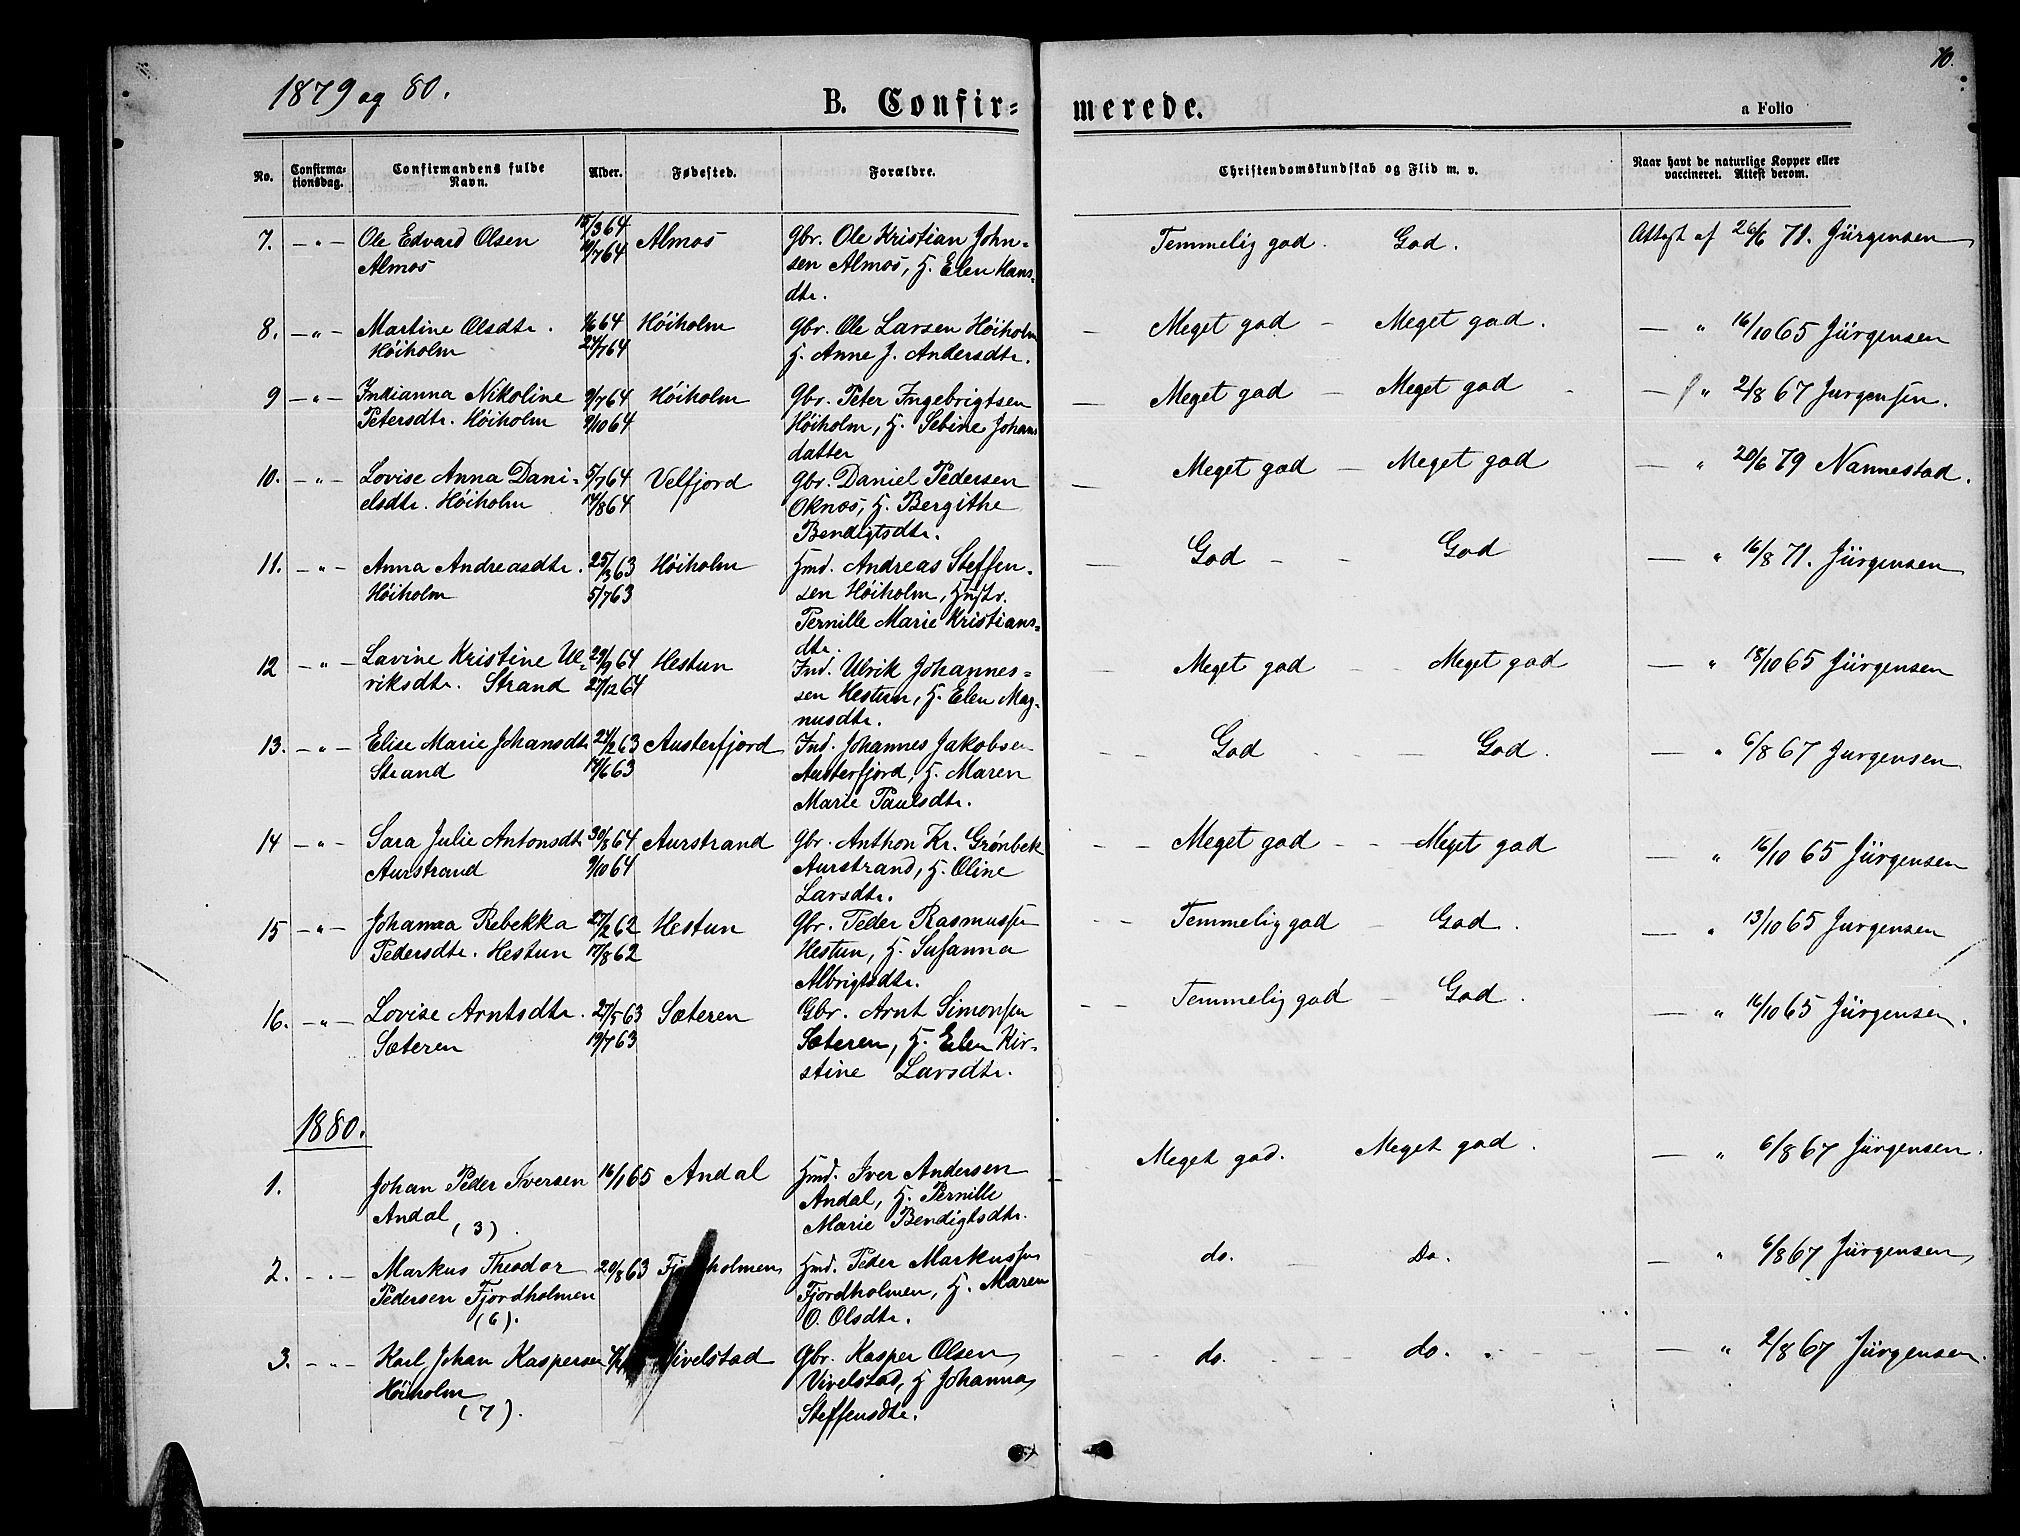 1879 og 80.
B. Confir=
merede.
70.
a Folio
No.
Confirma-
tionsdag.
Confirmandens fulde
Navn.
Alder.
Fødested.
Forældre.
Christendomskundskab og Flid m. v.
Naar havt de naturlige Kopper eller
vaccineret. Attest derom.
7. —"— Ole Edvard Olsen 15/3 64 Almos Gbr. Ole Kristian John= Temmelig god. God. Attest af 26/6 71. Jürgensen
Almos /7 64 sen Almos, H. Elen Hans=
dtr.
8. —"— Martine Olsdtr. /6 64 Høiholm Gbr. Ole Larsen Høiholm — Meget god — Meget god. — " 16/10 65 Jürgensen
Høiholm 24/7 64 H. Anne J. Andersdtr.
9 —"— Indianna Nikoline 9/7 64 Høiholm Gbr. Peter Ingebrigtsen — Meget god — Meget god — " 2/8 67 Jurgensen.
Petersdtr. Høiholm 9/10 64 Høiholm, H. Sebine Johans
datter
10. —"— Lovise Anna Dani- 5/7 64 Velfjord Gbr. Daniel Pedersen — Meget god — Meget god — " 20/6 79 Nannestad.
elsdtr. Høiholm 14/8 64 Oknos, H. Bergithe
Bendigtsdtr.
11. —"— Anna Andreasdtr. 25/3 63 Høiholm Hmd. Andreas Steffen- — God - - God — " 16/8 71. Jürgensen
Høiholm 5/7 63 sen Høiholm, Hustr.
Pernille Marie Kristians=
dtr.
12 —"— Lavine Kristine Ul- 29/9 64 Hestun Ind. Ulrik Johannes= Meget god - - Meget god — " 18/10 65 Jürgensen
riksdtr. Strand 27/12 64 sen Hestun, H. Elen Mag-
nusdtr.
13. —"— Elise Marie Johansdtr 24/2 63 Austerfjord Ind. Johannes Jakobsen — God - — God. — " 6/8 67 Jurgensen.
Strand 14/6 63 Austerfjord, H. Maren
Marie Paulsdtr.
14 —"— Sara Julie Antonsdtr 30/8 64 Aurstrand Gbr. Anthon Kr. Grønbek - - Meget god - - Meget god — " 16/10 65 Jürgensen
Aurstrand 9/10 64 Aurstrand, H. Oline
Larsdtr.
15 —"— Johanna Rebekka 27/2 62 Hestun Gbr. Peder Rasmussen - - Temmelig god - God. — " 13/10 65 Jurgensen
Pedersdtr. Hestun 17/8 62 Hestun, H. Susanna
Albrigtsdtr.
16. —"— Lovise Arntsdtr. 27/5 63 Sæteren Gbr. Arnt Simonsen - - Temmelig god - God. — " 16/10 65 Jürgensen.
Sæteren 19/7 63 Sæteren, H. Elen Kir-
stine Larsdtr.
1880.
1. Johan Peder Iversen 16/1 65 Andal Hmd. Iver Andersen Meget god. Meget god. — " 6/8 67 Jürgensen.
Andal Andal, H. Pernille
(3). Marie Bendigtsdtr.
2. -"- Markus Theodor 20/8 63 Fjordholmen Hmd. Peder Markussen do. - Do. — " 6/8 67 Jürgensen
Pedersen Fjordholmen Fjordholmen, H. Maren
(6). O. Olsdtr.
3. -"- Karl Johan Kaspersen Vivelstad Gbr. Kasper Olsen do. - - do. - - — " 2/8 67 Jürgensen.
Høiholm Vivelstad, H Johanna
(7). Steffensdtr.